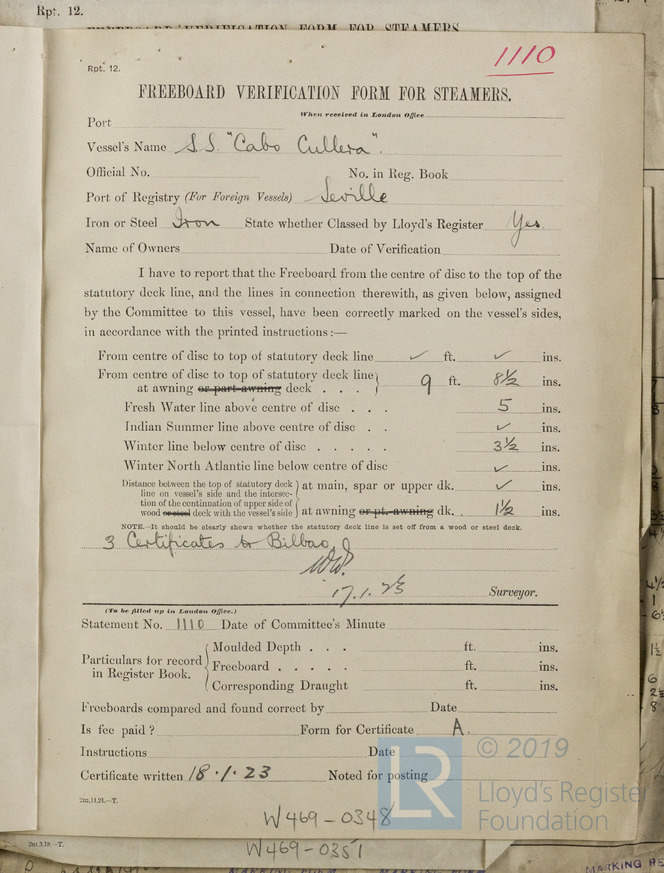 Rpt. 12.
FREEBOARD VERIFICATION FORM FOR STEAMERS
1110
Rpt. 12.
FREEBOARD VERIFICATION FORM FOR STEAMERS.
When received in London Office
Port
Vessel's Name S.S. "Cabo Cullera".
Official No. No. in Reg. Book
Port of Registry (For Foreign Vessels) Seville
Iron or Steel Iron State whether Classed by Lloyd's Register Yes
Name of Owners Date of Verification
I have to report that the Freeboard from the centre of disc to the top of the
statutory deck line, and the lines in connection therewith, as given below, assigned
by the Committee to this vessel, have been correctly marked on the vessel's sides,
in accordance with the printed instructions :—
From centre of disc to top of statutory deck line ✓ ft. ✓ ins.
From centre of disc to top of statutory deck line
at awning or part awning deck . . . 9 ft. 8½ ins.
Fresh Water line above centre of disc . . . 5 ins.
Indian Summer line above centre of disc . . ✓ ins.
Winter line below centre of disc . . . . . 3½ ins.
Winter North Atlantic line below centre of disc ✓ ins.
Distance between the top of statutory deck
line on vessel's side and the intersec-
tion of the continuation of upper side of
wood or steel deck with the vessel's side
at main, spar or upper dk. ✓ ins.
at awning or pt. awning dk. . 1½ ins.
NOTE.—It should be clearly shown whether the statutory deck line is set off from a wood or steel deck.
3 Certificates to Bilbao
17.1.23
Surveyor.
(To be filled up in London Office.)
Statement No. 1110 Date of Committee's Minute
Particulars for record
in Register Book.
Moulded Depth . . . ft. ins.
Freeboard . . . . . ft. ins.
Corresponding Draught ft. ins.
Freeboards compared and found correct by Date
Is fee paid ? Form for Certificate A.
Instructions Date
Certificate written 18.1.23 Noted for posting
2m,11,21.—T.
LR
© 2019
Lloyd's Register
Foundation
W469-0348
2m.3,18.—T.
W469-0351
MARKING FORM
MARKING RE